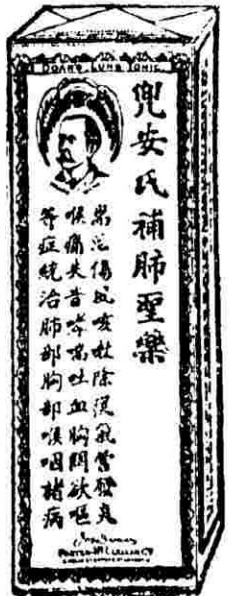 DOANS LUNG TONIC
兜安氏補肺聖藥
喉痛失音哮喘吐血胸悶欲嘔
等症統治肺部胸部喉咽諸病
FOSTER-McCLELLAN Co